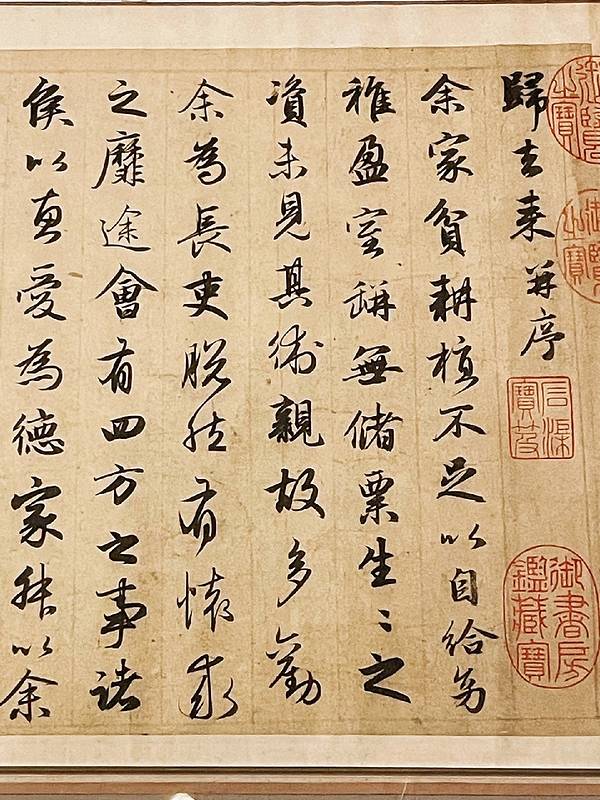 歸去来并序
余家貧耕植不足以自給幼
稚盈室缾無儲粟生〻之
資未見其術親故多勸
余為長吏脫然有懷求
之靡途會有四方之事諸
侯以惠愛為德家叔以余
御覽之寶
石渠寶笈
御書房鑑藏寶